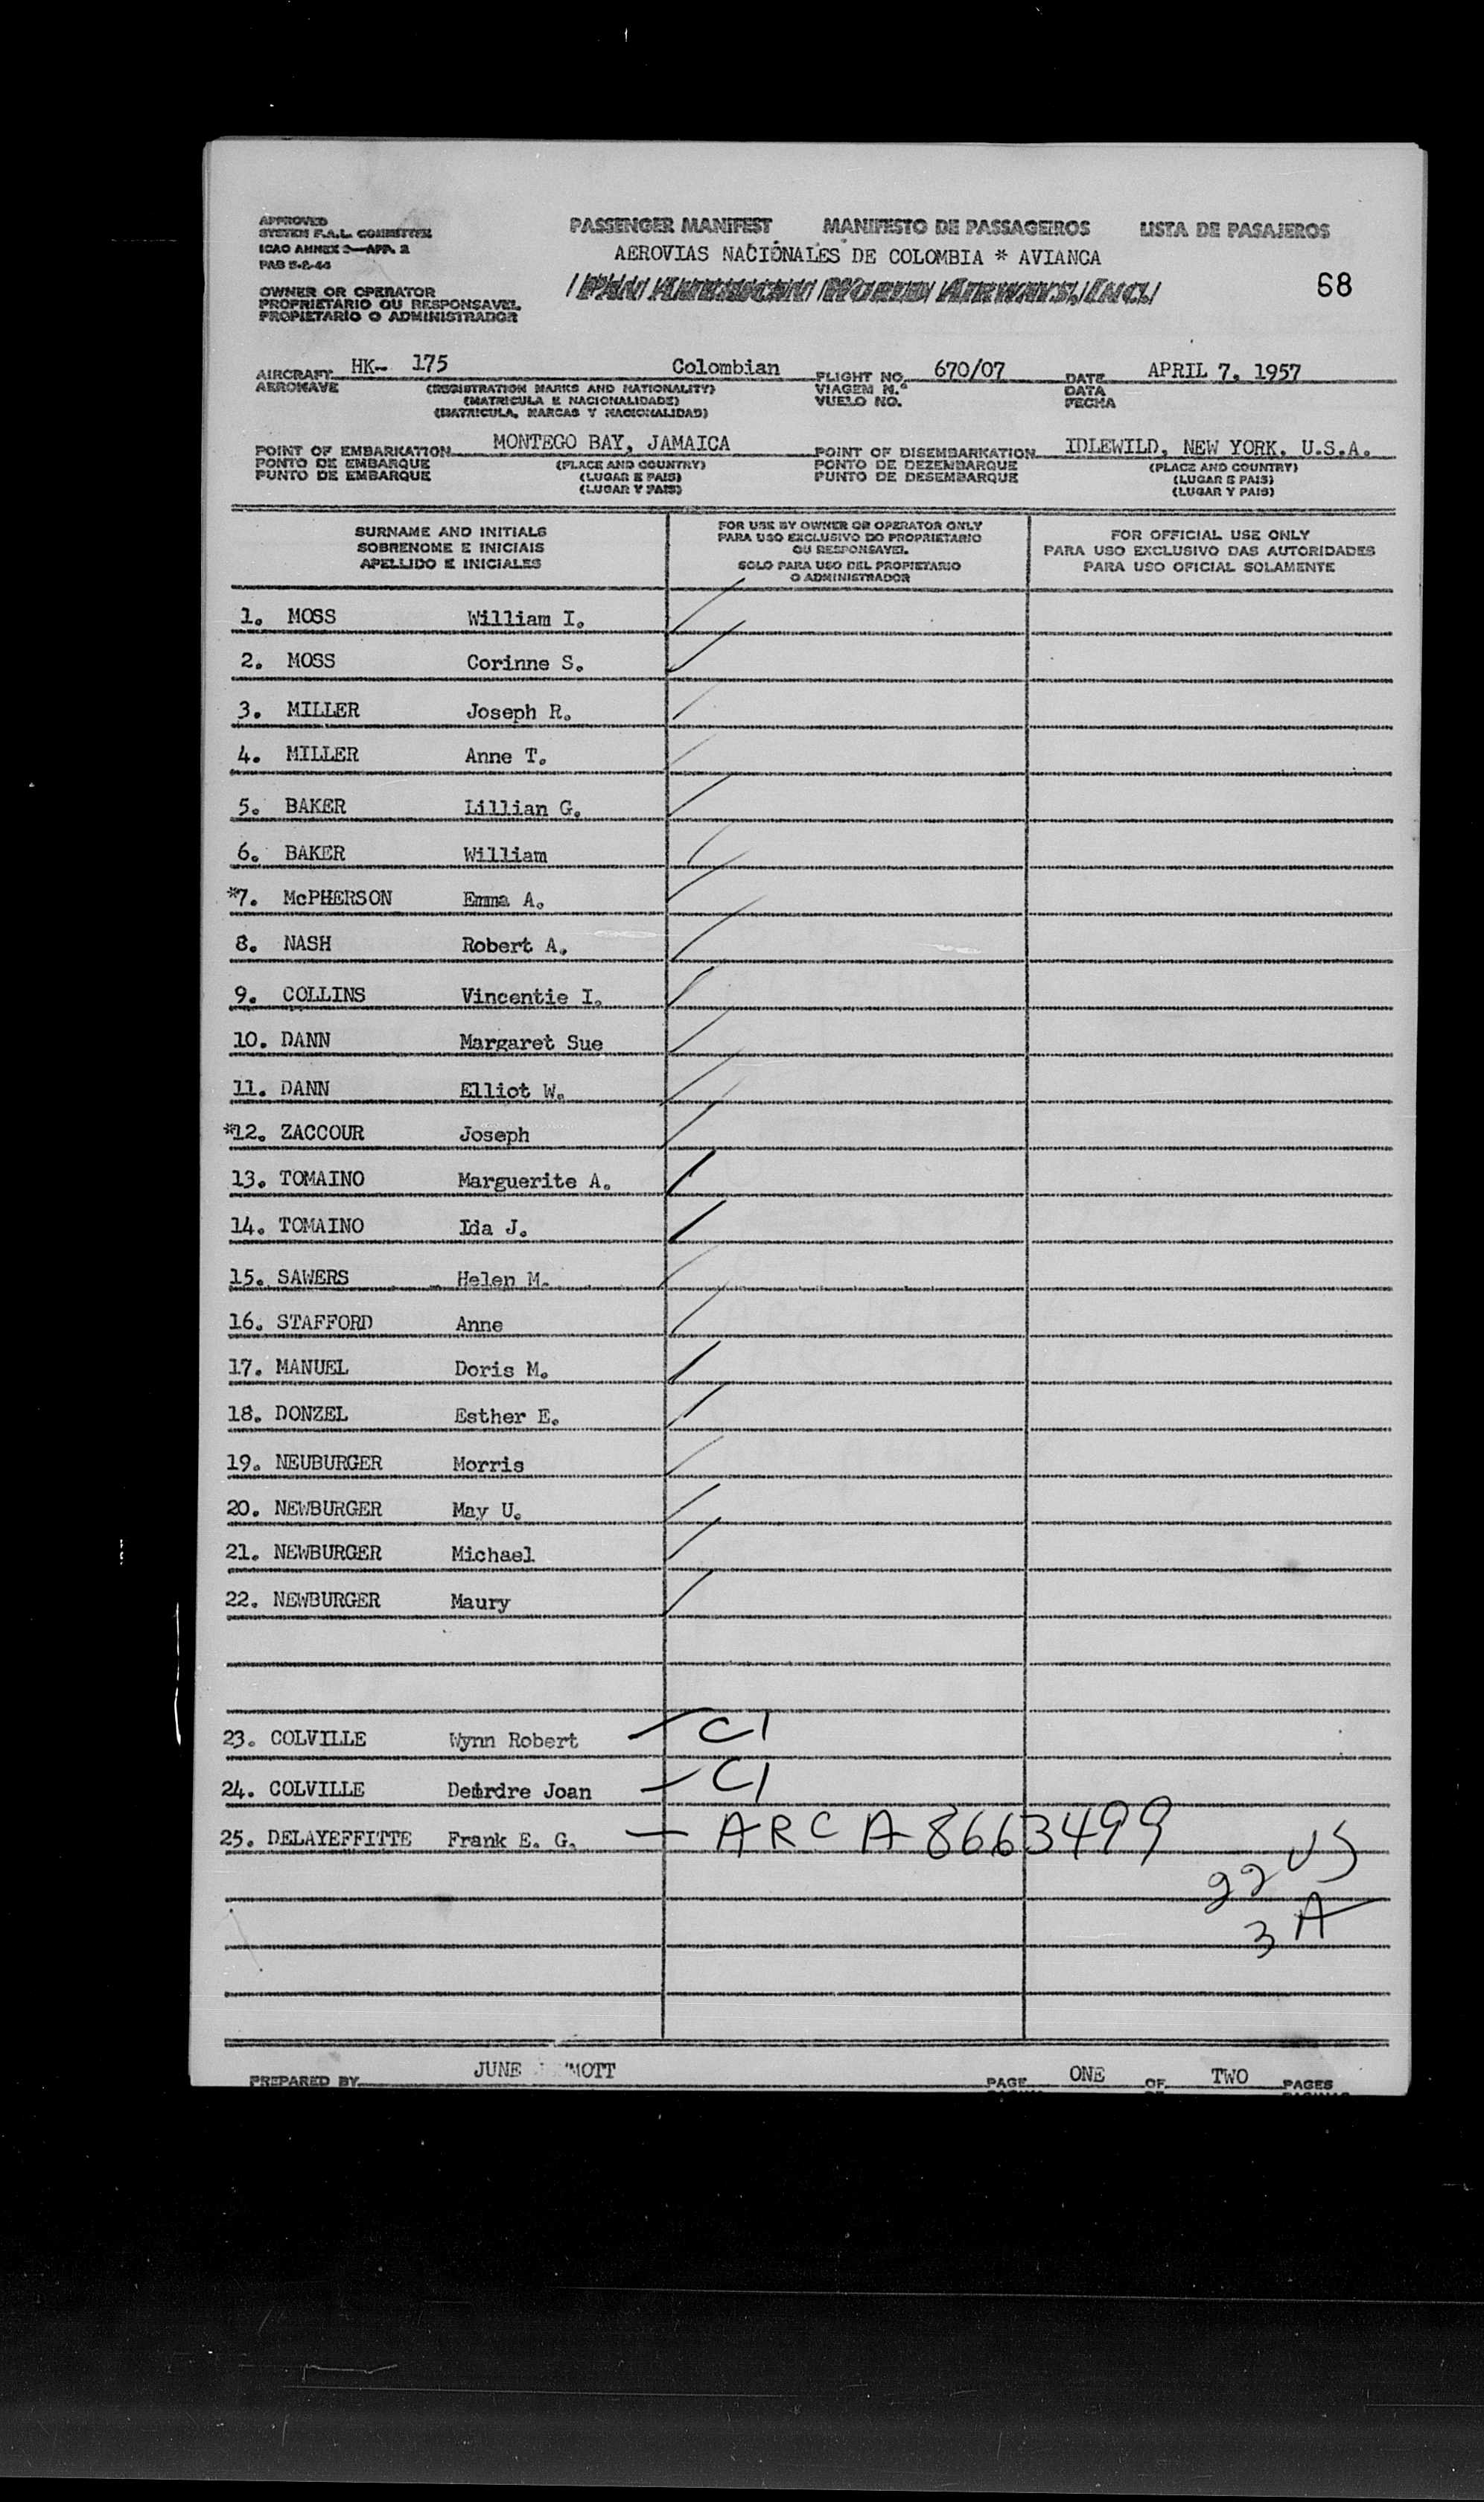 APPROVED
SYSTEM F.A.L. COMMITTEE
ICAO ANNEX 9—APP. 2
PAB 5-2-44
PASSENGER MANIFEST MANIFESTO DE PASSAGEIROS LISTA DE PASAJEROS
AEROVIAS NACIONALES DE COLOMBIA * AVIANCA
PAN AMERICAN WORLD AIRWAYS, INC.
68
OWNER OR OPERATOR
PROPRIETARIO OU RESPONSAVEL
PROPIETARIO O ADMINISTRADOR
AIRCRAFT HK- 175 Colombian FLIGHT NO. 670/07 DATE APRIL 7, 1957
AERONAVE (REGISTRATION MARKS AND NATIONALITY) VIAGEM N.º DATA
(MATRICULA E NACIONALIDADE) VUELO NO. FECHA
(MATRICULA, MARCAS Y NACIONALIDAD)
POINT OF EMBARKATION MONTEGO BAY, JAMAICA POINT OF DISEMBARKATION IDLEWILD, NEW YORK, U.S.A.
PONTO DE EMBARQUE (PLACE AND COUNTRY) PONTO DE DEZEMBARQUE (PLACE AND COUNTRY)
PUNTO DE EMBARQUE (LUGAR E PAIS) PUNTO DE DESEMBARQUE (LUGAR E PAIS)
(LUGAR Y PAIS) (LUGAR Y PAIS)
SURNAME AND INITIALS
SOBRENOME E INICIAIS
APELLIDO E INICIALES
FOR USE BY OWNER OR OPERATOR ONLY
PARA USO EXCLUSIVO DO PROPRIETARIO
OU RESPONSAVEL
SOLO PARA USO DEL PROPIETARIO
O ADMINISTRADOR
FOR OFFICIAL USE ONLY
PARA USO EXCLUSIVO DAS AUTORIDADES
PARA USO OFICIAL SOLAMENTE
1. MOSS William I.
2. MOSS Corinne S.
3. MILLER Joseph R.
4. MILLER Anne T.
5. BAKER Lillian G.
6. BAKER William
*7. McPHERSON Emma A.
8. NASH Robert A.
9. COLLINS Vincentie I.
10. DANN Margaret Sue
11. DANN Elliot W.
*12. ZACCOUR Joseph
13. TOMAINO Marguerite A.
14. TOMAINO Ida J.
15. SAWERS Helen M.
16. STAFFORD Anne
17. MANUEL Doris M.
18. DONZEL Esther E.
19. NEUBURGER Morris
20. NEWBURGER May U.
21. NEWBURGER Michael
22. NEWBURGER Maury
23. COLVILLE Wynn Robert — C1
24. COLVILLE Deirdre Joan — C1
25. DELAYEFFITTE Frank E. G. — ARC A8663499
22 US
3 A
PREPARED BY JUNE MOTT PAGE ONE OF TWO PAGES